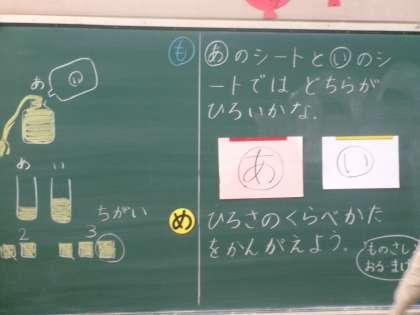 あ
い
あ
い
ちがい
2
3
も
あのシートといのシ
ートでは、どちらが
ひろいかな。
あ
い
め
ひろさのくらべかた
をかんがえよう。
ものさし
おる・まげ